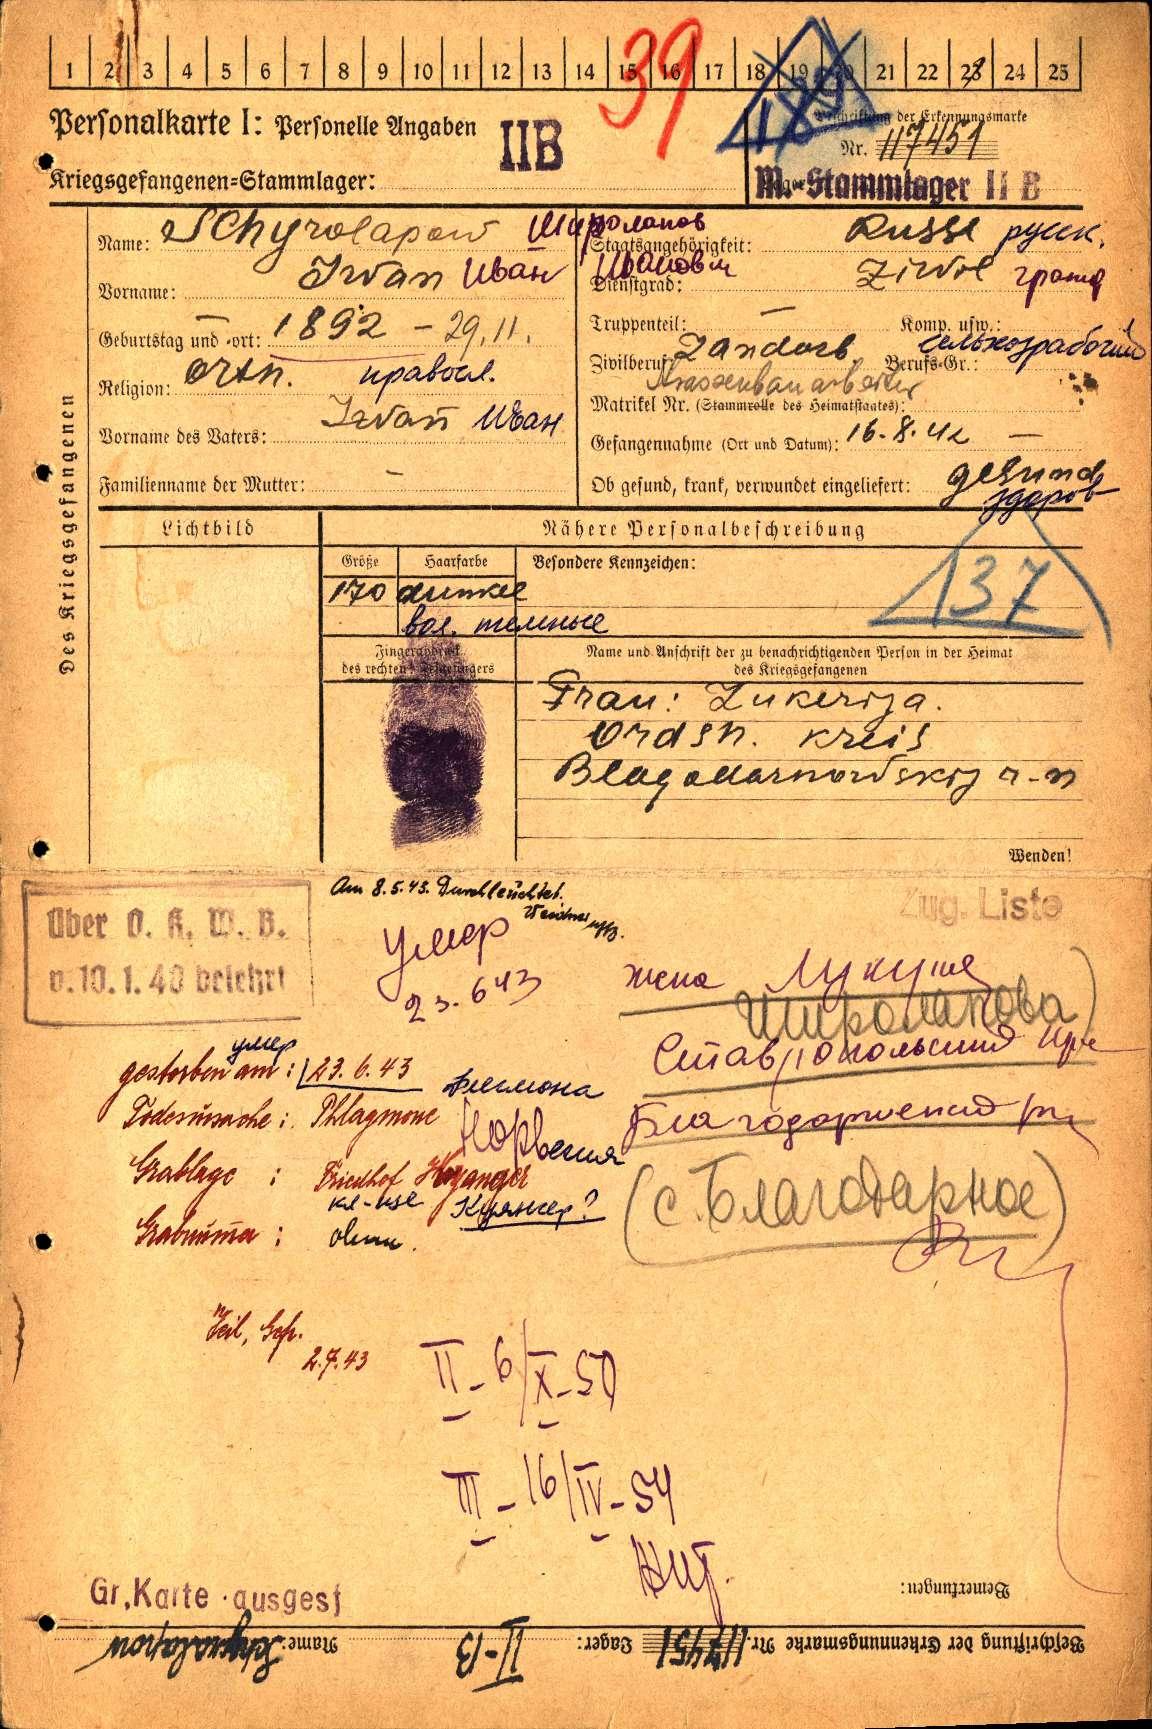 1 2 3 4 5 6 7 8 9 10 11 12 13 14 15 16 17 18 19 20 21 22 23 24 25
39
189
Personalkarte I: Personelle Angaben
IIB
Beschriftung der Erkennungsmarke
Nr. 117451
Kriegsgefangenen=Stammlager:
M.-Stammlager II B
Des Kriegsgefangenen
Name: Schyrolapow Широлапов
Vorname: Iwan Иван Иванович
Geburtstag und -ort: 1892 – 29.11.
Religion: orth. правосл.
Vorname des Vaters: Iwan Иван
Familienname der Mutter: –
Staatsangehörigkeit: Russe русск.
Dienstgrad: Zivil гражд
Truppenteil: – Komp. usw.:
Zivilberuf: Landarb. Berufs-Gr.: сельхозрабочий
Strassenbauarbeiter
Matrikel Nr. (Stammrolle des Heimatstaates):
Gefangennahme (Ort und Datum): 16.8.42 –
Ob gesund, krank, verwundet eingeliefert: gesund
здоров
Lichtbild
Nähere Personalbeschreibung
Größe Haarfarbe Besondere Kennzeichen:
170 dunkel
вол. темные
137
Fingerabdruck
des rechten Zeigefingers
Name und Anschrift der zu benachrichtigenden Person in der Heimat
des Kriegsgefangenen
Frau: Lukerija.
Ordsh. Kreis
Blagodarnowskij r-n
Wenden!
Über O. K. W. B.
v. 10. 1. 40 belehrt
Am 8.5.43. Durchleuchtet.
Zug. Liste
умер
23.6 43
жена
Широлапова)
Ставропольский кра
Благодарненский
(с. Благодарное)
умер
gestorben am: 23.6.43 флегмона
Todesursache: Phlagmone Норвегия
Grablage : Friedhof
кл-ще Куянгер?
Grabnummer :
2.7.43
II – 6/X–50
III – 16/IV–54
Gr. Karte ausgest
Bemerkungen:
Beschriftung der Erkennungsmarke Nr. 117451 Lager: II–B Name: Schyrolapow